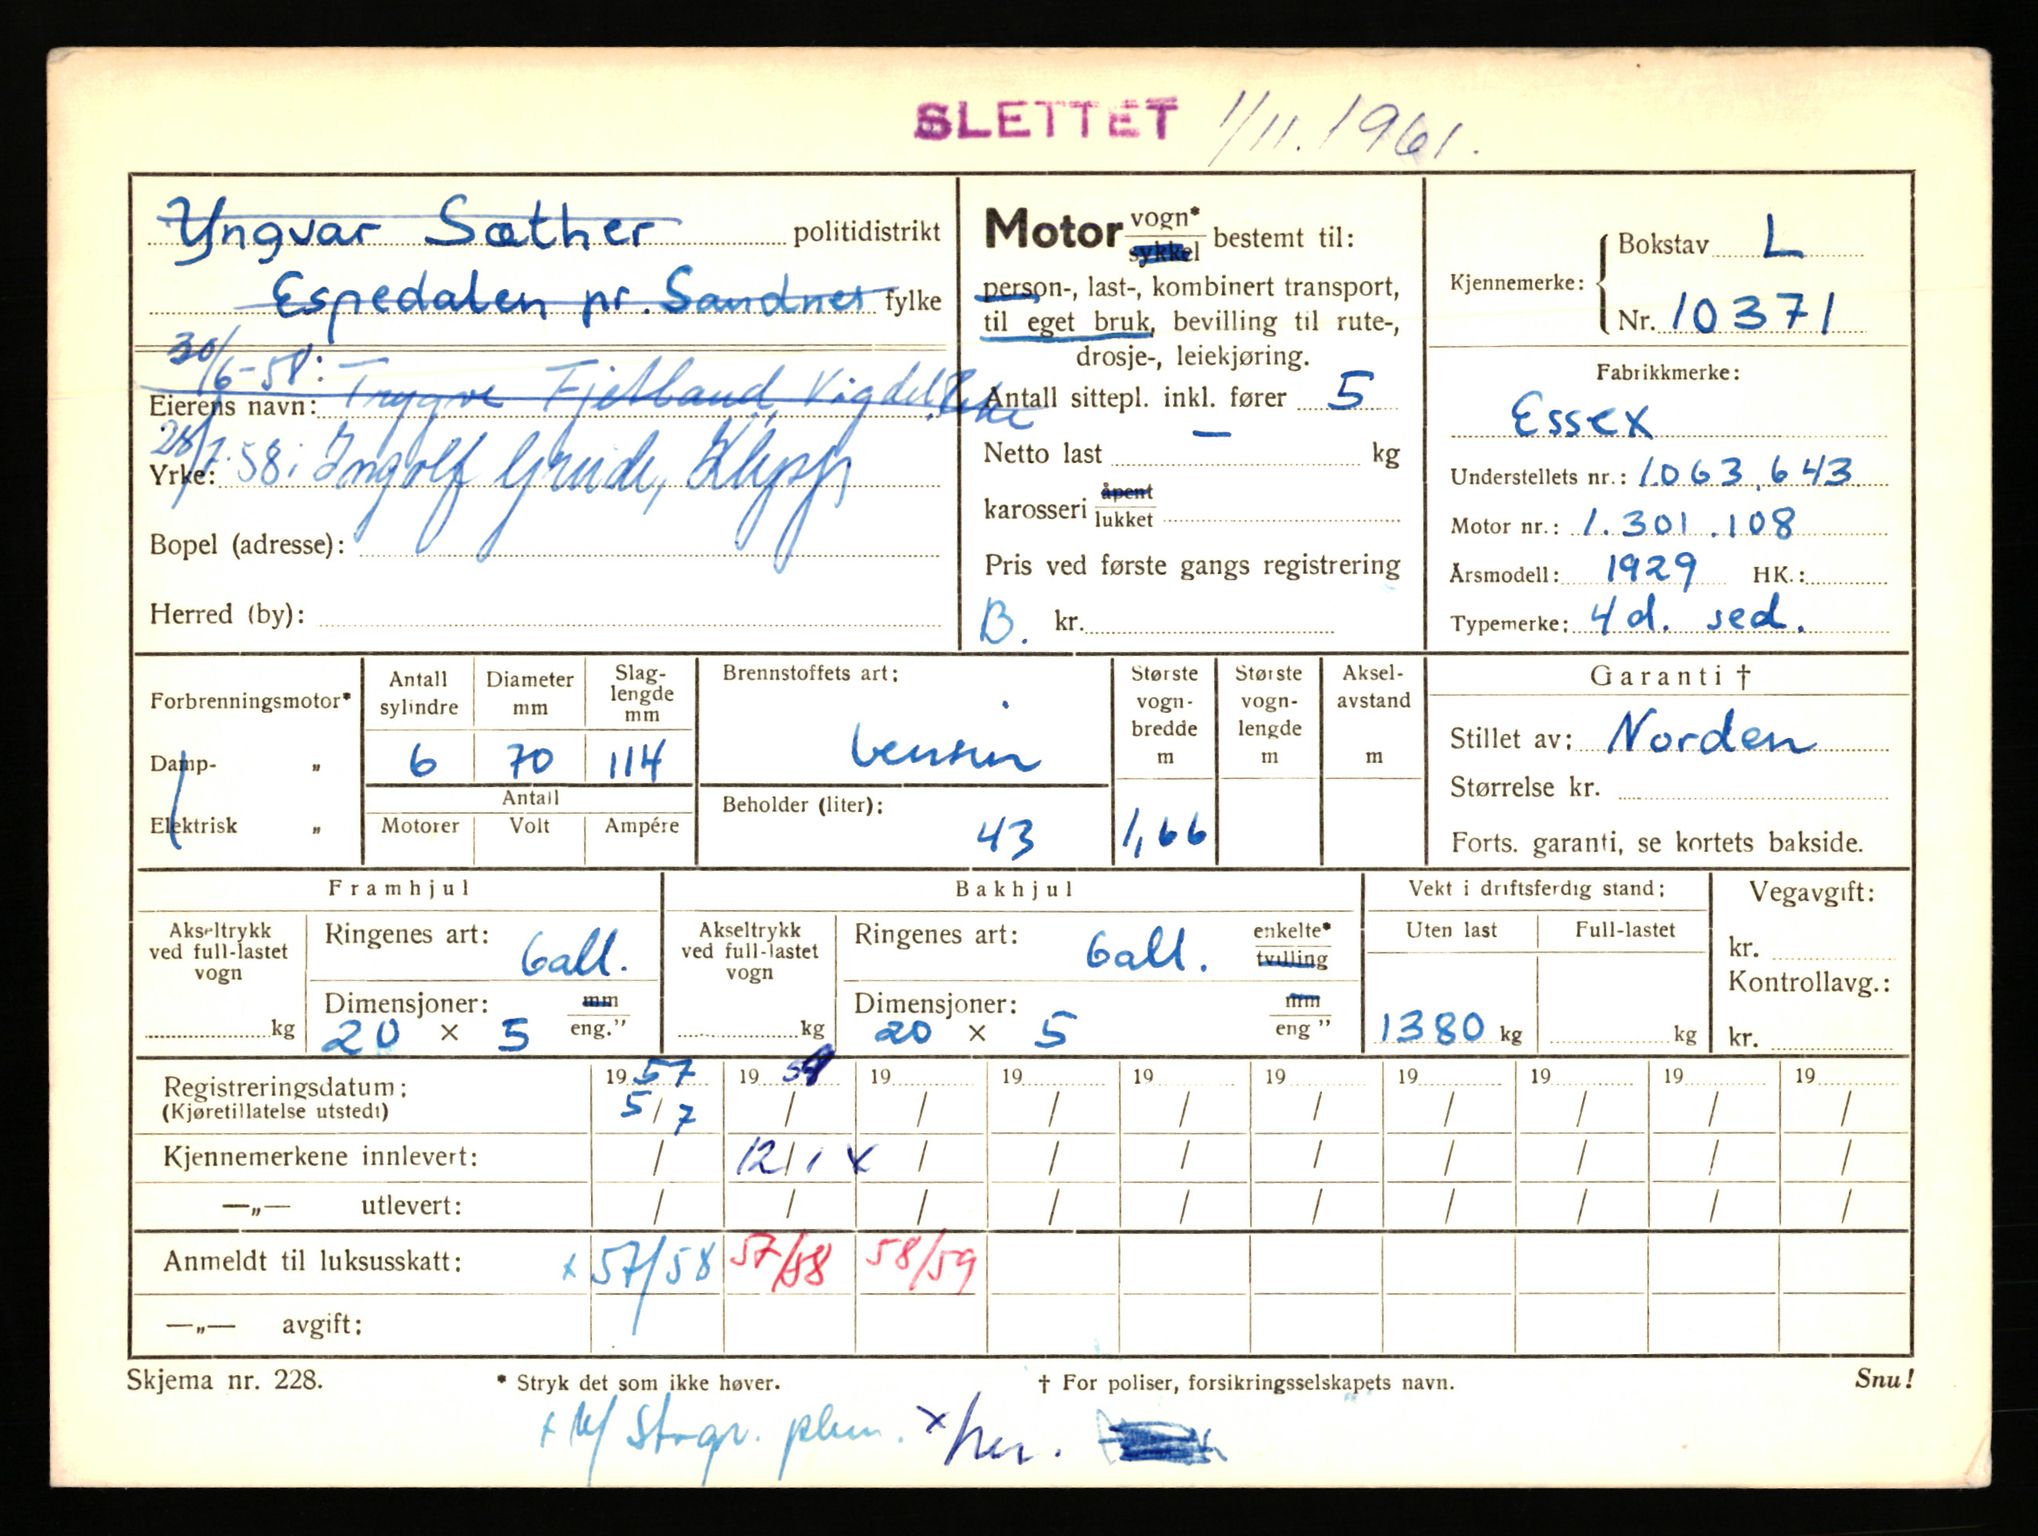 SLETTET 1/11.1961.
Yngvar Sæther politidistrikt
Espedalen pr. Sandnes fylke
30/6-58: Trygve Fjetland, Vigdel,
Eierens navn:
28/7.58: Ingolf Grude, Klepp
Yrke:
Bopel (adresse):
Herred (by):
Motor vogn* sykkel bestemt til:
person-, last-, kombinert transport,
til eget bruk, bevilling til rute-,
drosje-, leiekjøring.
Antall sittepl. inkl. fører 5
Netto last — kg
karosseri åpent lukket
Pris ved første gangs registrering
B. kr.
Kjennemerke: { Bokstav L
Nr. 10371
Fabrikkmerke:
Essex
Understellets nr.: 1.063.643
Motor nr.: 1.301.108
Årsmodell: 1929 HK.:
Typemerke: 4 d. sed.
Forbrenningsmotor*
Damp- „
Elektrisk „
Antall sylindre 6
Diameter mm 70
Slaglengde mm 114
Antall
Motorer Volt Ampére
Brennstoffets art:
bensin
Beholder (liter):
43
Største vognbredde m 1,66
Største vognlengde m
Akselavstand m
Garanti †
Stillet av: Norden
Størrelse kr.
Forts. garanti, se kortets bakside.
Framhjul
Akseltrykk ved full-lastet vogn kg
Ringenes art: ball.
Dimensjoner: mm
20 × 5 eng.”
Bakhjul
Akseltrykk ved full-lastet vogn kg
Ringenes art: ball. enkelte* tvilling
Dimensjoner: mm
20 × 5 eng ”
Vekt i driftsferdig stand:
Uten last Full-lastet
1380 kg kg
Vegavgift:
kr.
Kontrollavg.:
kr.
Registreringsdatum: 19 57 19 59 19 19 19 19 19 19 19 19
(Kjøretillatelse utstedt) 5/7 / / / / / / / / /
Kjennemerkene innlevert: / 12/1 x / / / / / / / /
—„— utlevert: / / / / / / / / / /
Anmeldt til luksusskatt: x 57/58 57/58 58/59
—„— avgift:
Skjema nr. 228. * Stryk det som ikke høver. † For poliser, forsikringsselskapets navn. Snu!
x her.